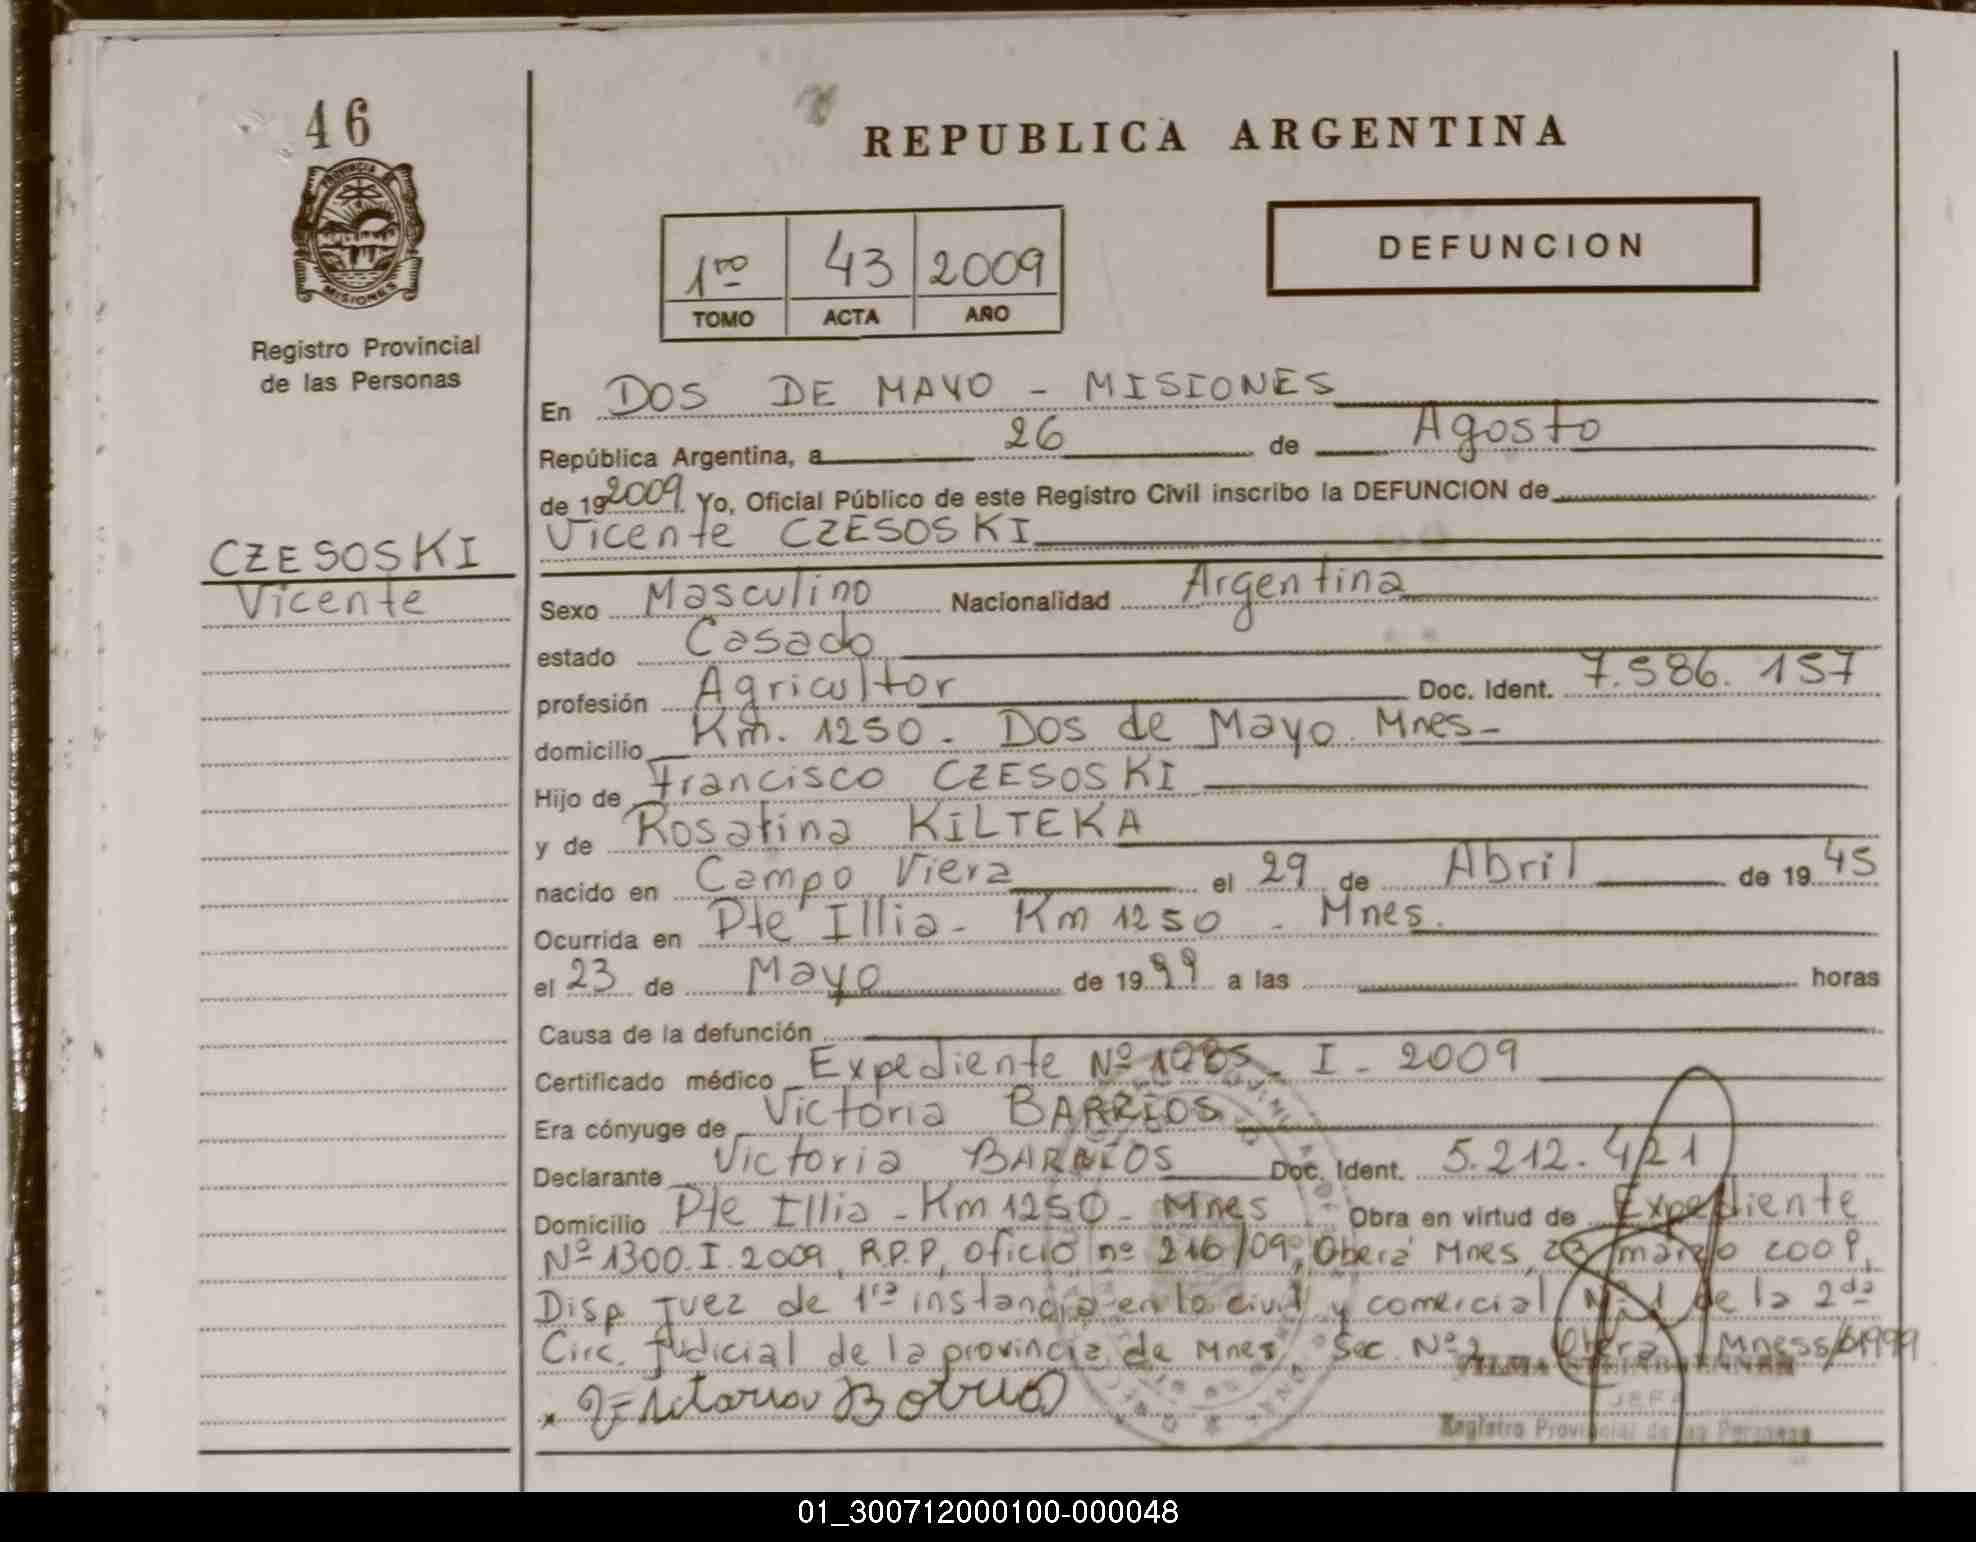 46
PROVINCIA DE
MISIONES
Registro Provincial
de las Personas
CZESOSKI
Vicente
REPUBLICA ARGENTINA
1ro 43 2009
TOMO ACTA AÑO
DEFUNCION
En DOS DE MAYO - MISIONES
República Argentina, a 26 de Agosto
de 19 2009. Yo, Oficial Público de este Registro Civil inscribo la DEFUNCION de
Vicente CZESOSKI
Sexo Masculino Nacionalidad Argentina
estado Casado
profesión Agricultor Doc. Ident. 7.586.157
domicilio Km. 1250. Dos de Mayo. Mnes-
Hijo de Francisco CZESOSKI
y de Rosatina KILTEKA
nacido en Campo Viera el 29 de Abril de 19 45
Ocurrida en Pte Illia - Km 1250 - Mnes.
el 23 de Mayo de 19 99 a las horas
Causa de la defunción
Certificado médico Expediente Nº 1085 - I - 2009
Era cónyuge de Victoria BARRIOS
Declarante Victoria BARRIOS Doc. Ident. 5.212.421
Domicilio Pte Illia - Km 1250 - Mnes Obra en virtud de Expediente
Nº 1300.I.2009, R.P.P, oficio nº 216/09, Oberá Mnes, 23 marzo 2009,
Disp Juez de 1ra instancia en lo civil y comercial Nº 1 de la 2da
Circ. Judicial de la provincia de Mnes. Sec. Nº 2 Oberá Mness/
JEFA
Registro Provincial de las Personas
01_300712000100-000048